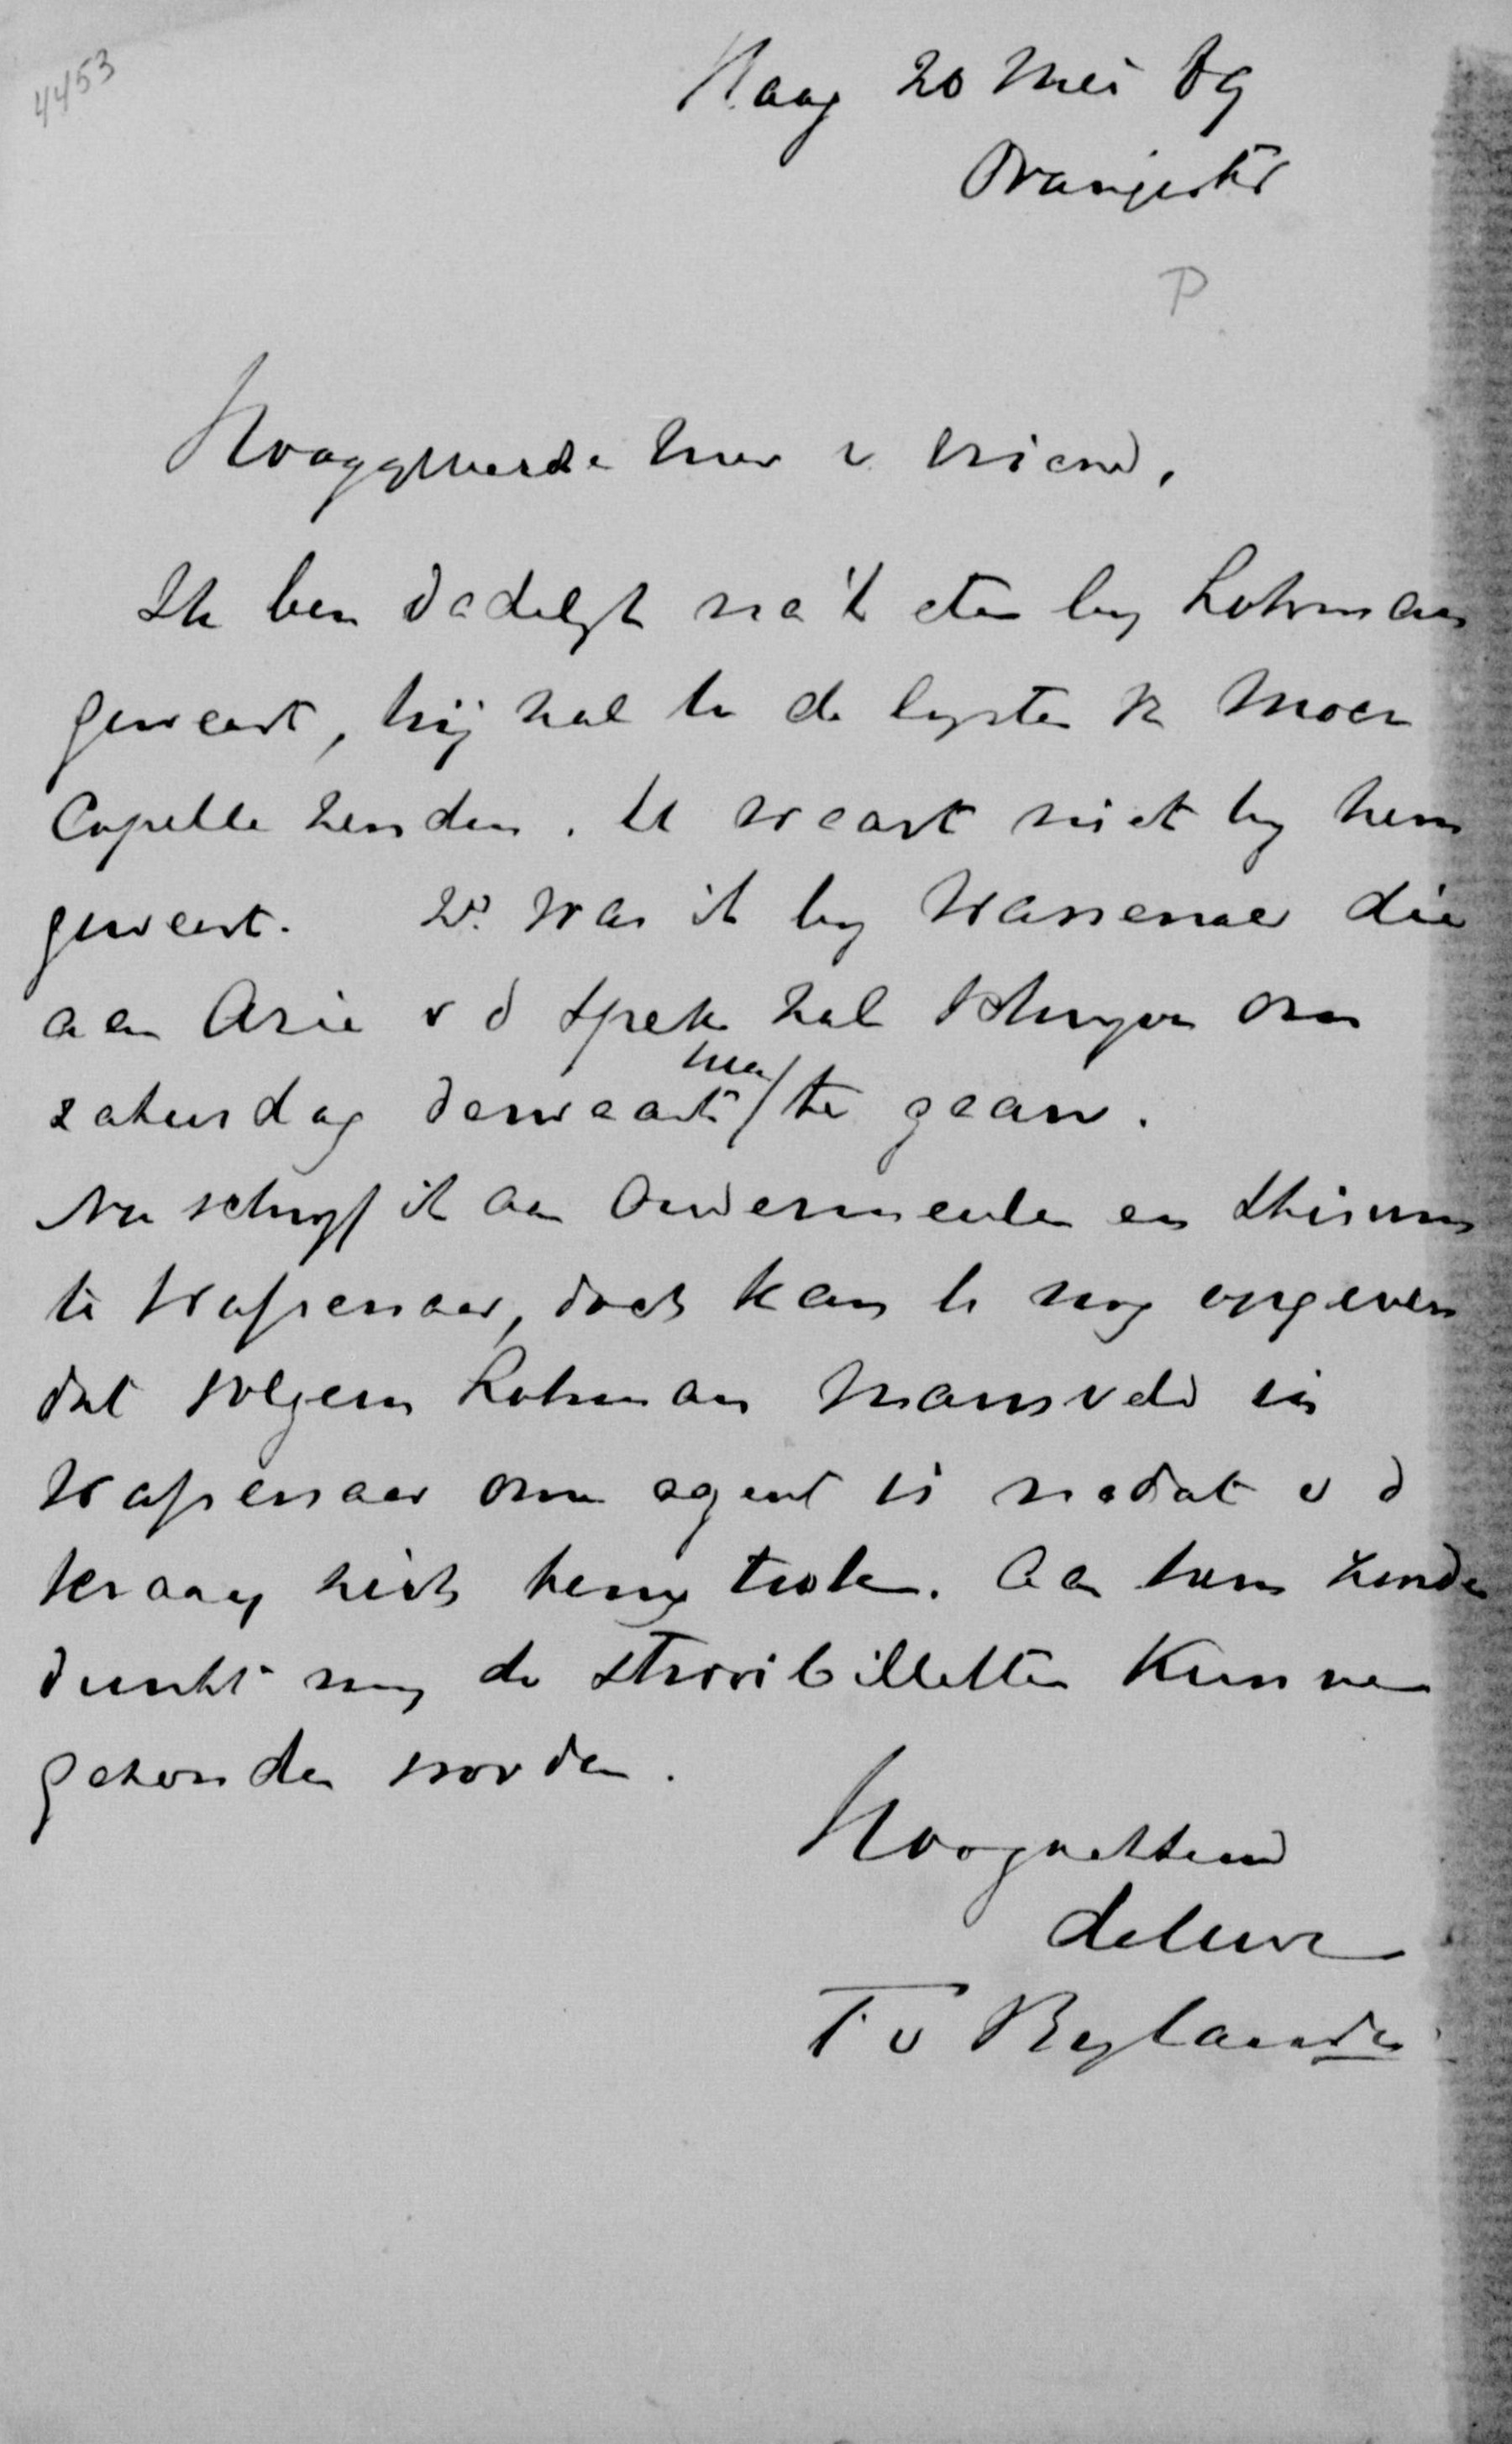 4453
Haag 20 Mei 89
Oranjestr
P
Hooggewaarde heer & vriend,
Ik ben dadelyk na 't eten by Lohman
geweest, hij zal U de lysten v Moer
Capelle zenden. U waart niet by hem
geweest. 2o. was ik by Wassenaer die
aan Arie v d Spek zal schryven om
zaturdag derwaarts mee/te gaan.
Nu schryf ik aan Oudermeulen en
te Wassenaar, doch kan U nog opgeven
dat volgens Lohman Mansveld in
Wassenaar onze agent is nadat v d
Kraay zich terug trok. Aan hem zouden
dunkt my de strooibilletten kunnen
gezonden worden.
Hoogachtend
de Uwe
T v Bylandt